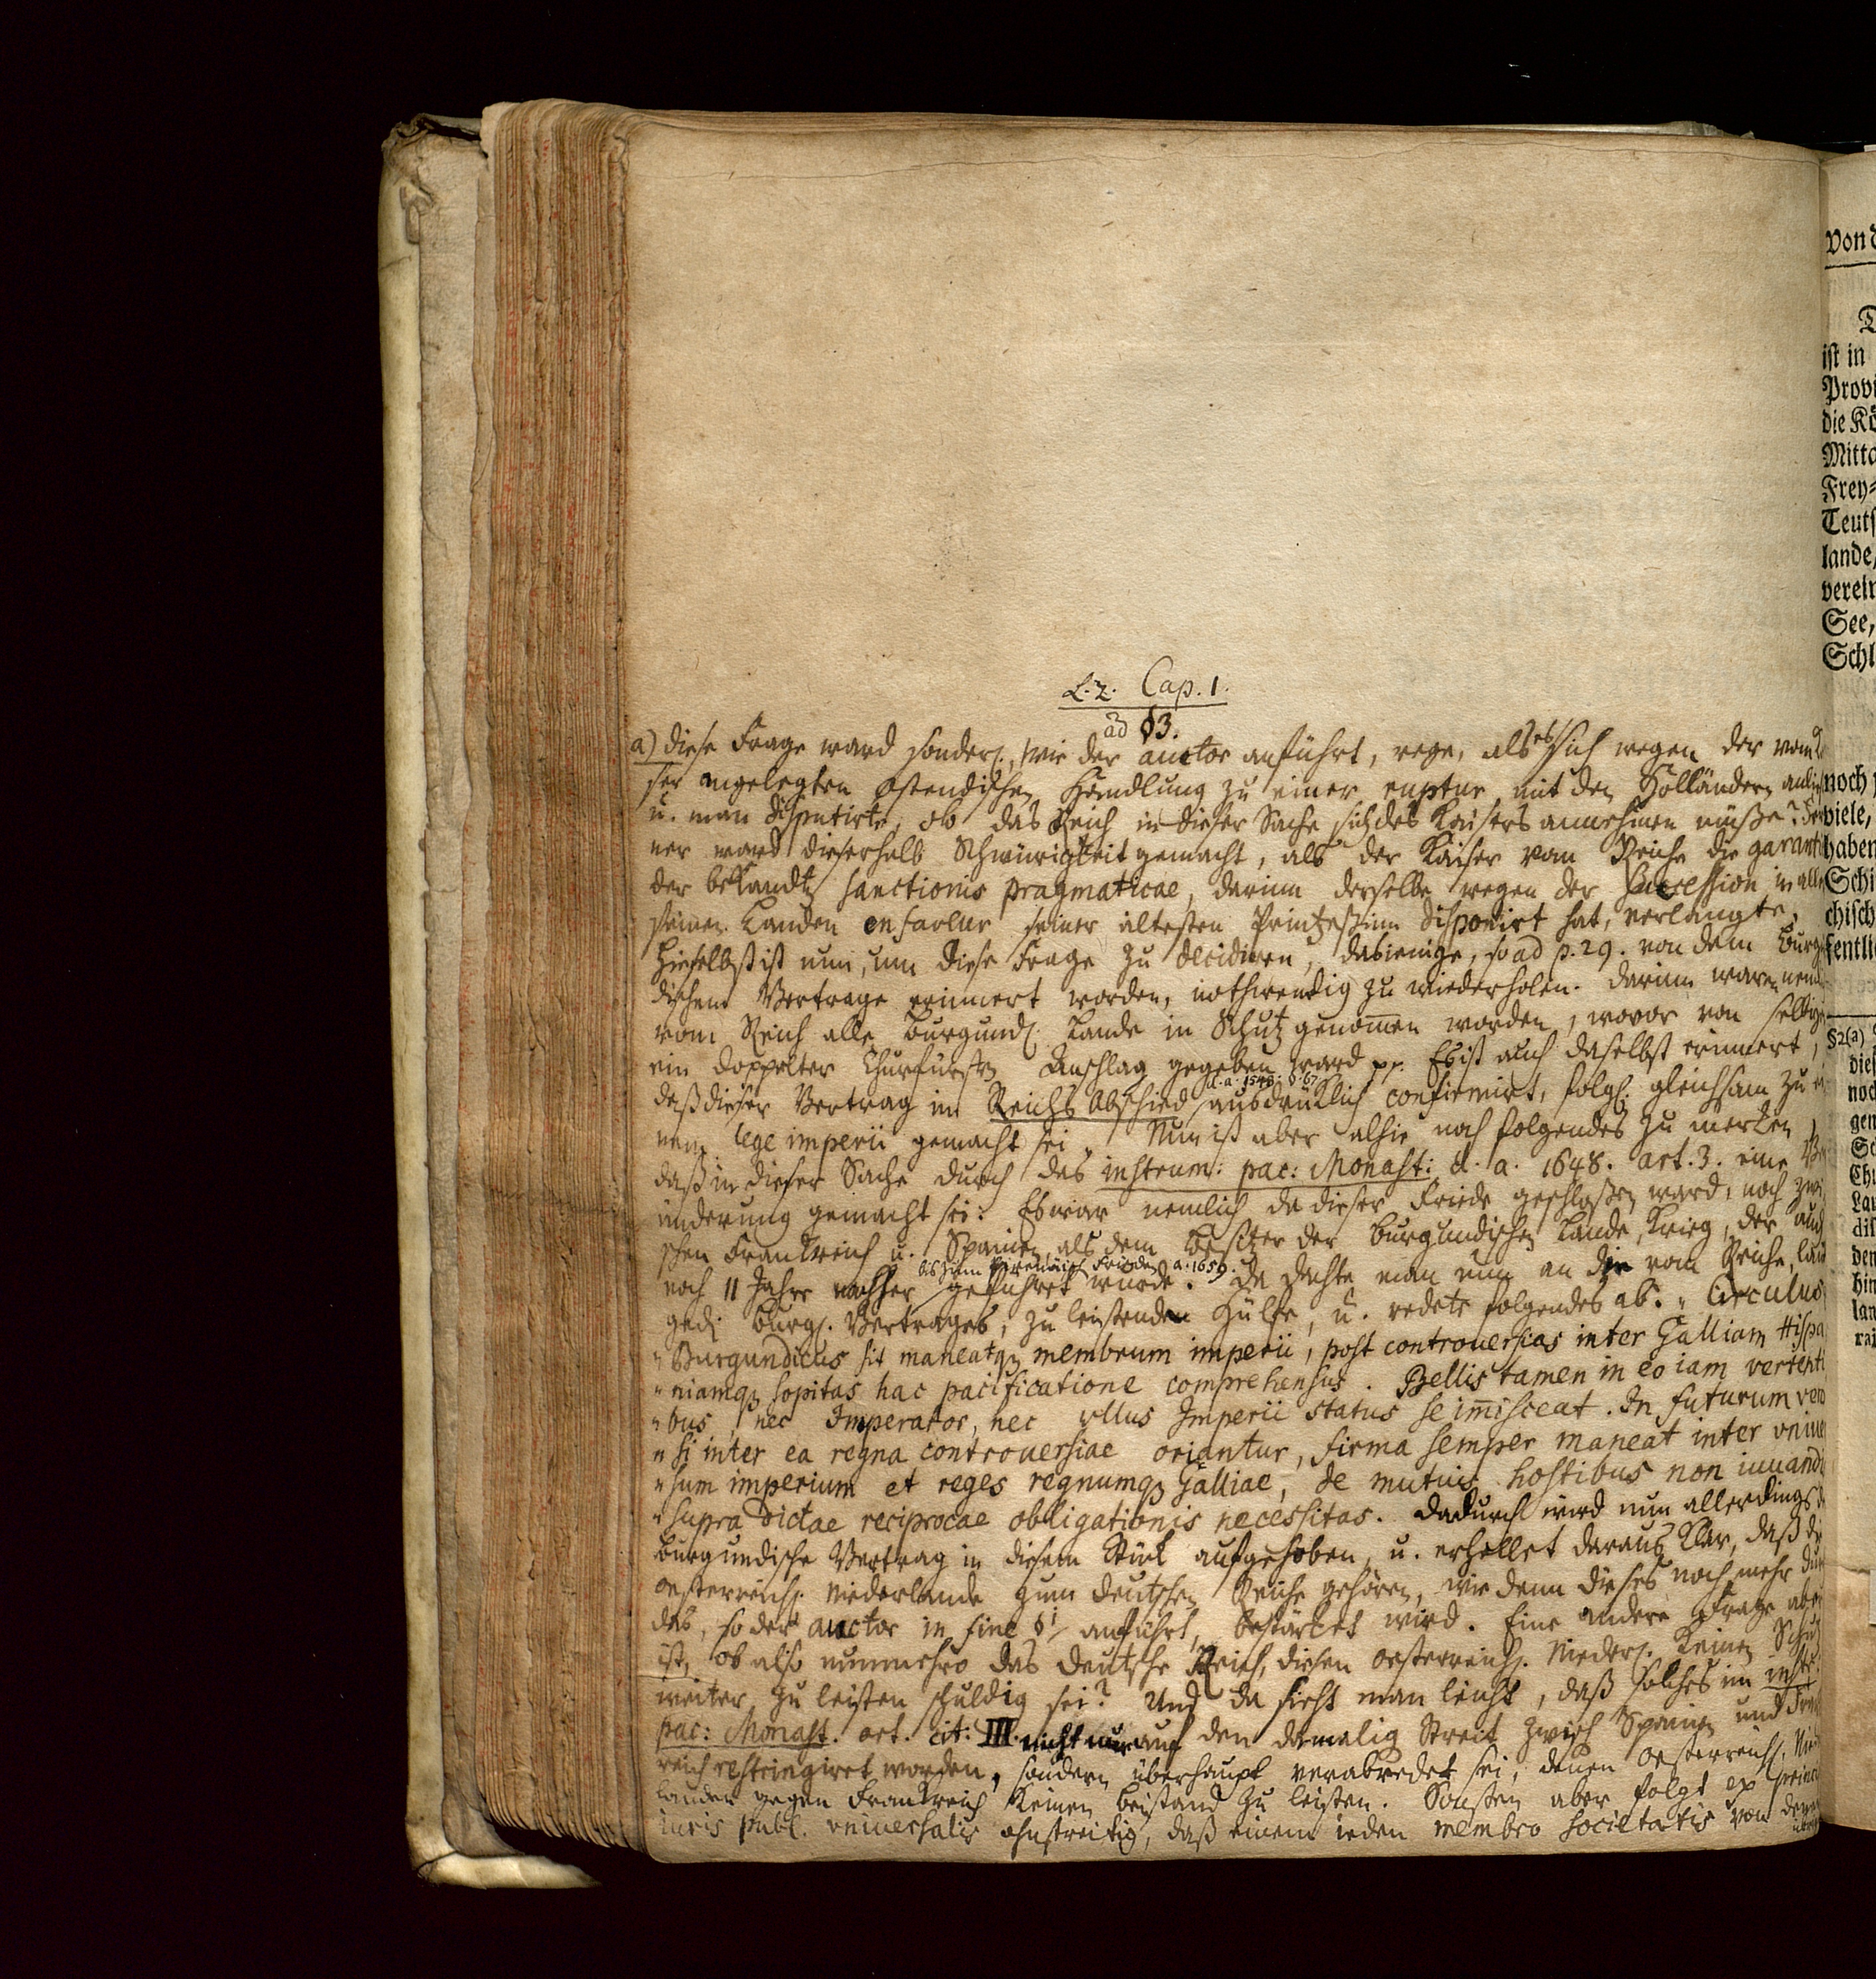 L. 2. Cap. 1.
ad §3.
a) Diese Frage ward sonderl., wie der auctor anführt, rege, als es sich wegen der vom
ser angelegten Ostendischen Handlung zu einer ruptur mit den Holländern anließ
u. man disputirte, ob das Reich in dieser Sache sich des Kaisers annehmen müße?
ner ward dieserhalb Schwürigkeit gemacht, als der Kaiser vom Reiche die garanti
der bekandten sanctionis pragmaticae, darinn derselbe wegen der Succession in alle
seinen Landen en faveur seiner ältesten Printzeßinn disponirt hat, verlangte,
Hieselbst ist nun, um diese Frage zu decidiren, dasienige, so ad p. 29. von dem Burgun
dischen Vertrage erinnert worden, nothwendig zu wiederholen. Darinn waren neml
vom Reich alle Burgund. Lande in Schutz genom̄en worden, wovor von selbige
ein doppelter Churfürsten Anschlag gegeben ward pp. Es ist auch daselbst erinnert,
daß dieser Vertrag im Reichs Abschied d. a. 1548. § 67 ausdrücklich confirmirt, folgl. gleichsam zu ei
nem lege imperii gemacht sei. Nun ist aber alhie noch folgendes zu merken,
daß in dieser Sache durch das instrum: pac: Monast: d. a. 1648. art. 3. eine Ver
änderung gemacht sei: Es war nemlich da dieser Friede geschloßen ward, noch zwi
schen Frankreich u. Spanien, als dem Besitzer der Burgundischen Lande, Krieg, der auch
noch 11 Jahre nachher bis zum Pirenäisch Frieden a. 1659. geführet wurde. Da dachte man nun an die vom Reiche, laut
ged. Burg. Vertrages, zu leistenden Hülfe, u. redete folgendes ab. „ Circulus
„ Burgundicus sit maneatqꝫ membrum imperii, post controuersias inter Galliam Hispa
„ niamqꝫ sopitas hac pacificatione comprehensus. Bellis tamen in eo iam vertenti
„ bus, nec Imperator, nec vllus Imperii status se im̄isceat. In futurum vero
„ si inter ea regna controuersiae oriantur, firma semper maneat inter vniuer
„ sum imperium et reges regnumqꝫ Galliae, de mutuis hostibus non iuuandi
„ supra dictae reciprocae obligationis necessitas. Dadurch wird nun allerdings
Burgundische Vertrag in diesem Stück aufgehoben, u. erhellet daraus klar, daß die
oesterreich. Niederlande zum deutschen Reiche gehören, wie denn dieses noch mehr durch
das, so der auctor in fine §i anführt, bestärket wird. Eine andere Frage aber
ist, ob also nunmehro das deutsche Reich, diesen oesterreich. Niederl. keinen Schutz
weiter zu leisten schuldig sei? Und da sieht man leicht, daß solches im instr.
pac: Monast. art. cit: III. nicht nur auf den damalig Streit zwisch Spanien und Frank
reich restringiret worden, sondern überhaupt verabredet sei, denen oesterreich. Nieder
landen gegen Frankreich keinen Beistand zu leisten. Sonsten aber folgt ex princi
iuris publ. vniuersalis ohnstreitig, daß einem ieden membro societatis von denen
übrig
Von d
ist in
Provi
die Kö
Mitta
Frey=
Teuts
lande,
verein
See,
Schl
noch
viele,
haben
Schi
chisch
fentli
§2(a)
dies
noc
gen
Sc
Chu
Lan
dis
den
hin
lan
rai